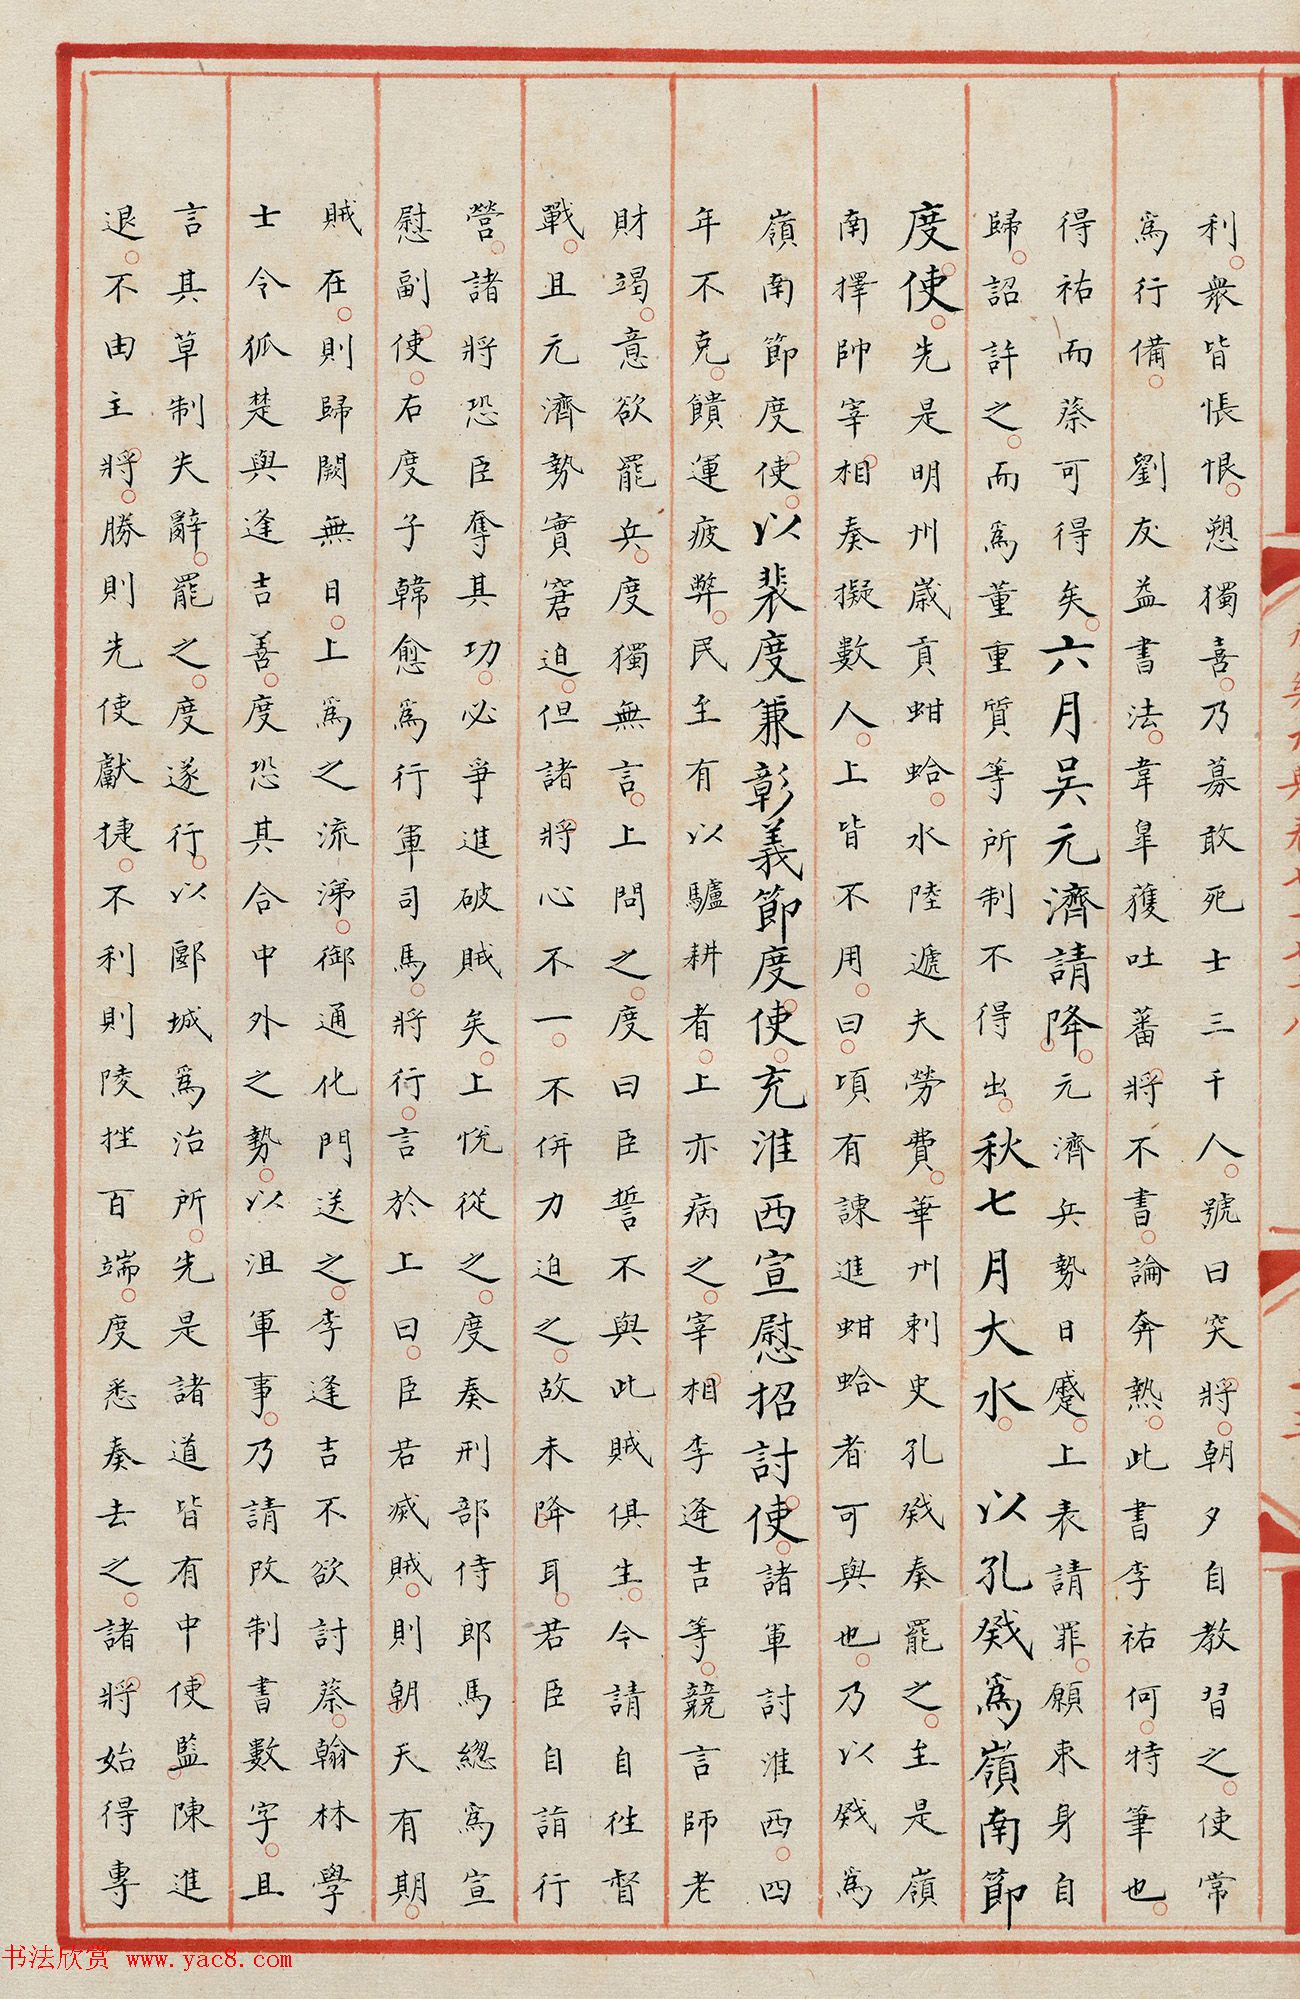 利衆皆悵恨愬獨喜乃募敢死士三千人號曰突將朝夕自教習之使常
爲行備 劉友益書法韋皐獲吐蕃將不書論奔熱此書李祐何特筆也
得祐而蔡可得矣六月吳元濟請降元濟兵勢日蹙上表請罪願束身自
歸詔許之而爲董重質等所制不得出秋七月大水 以孔戣爲嶺南節
度使先是明州歲貢蚶蛤水陸遞夫勞費華州刺史孔戣奏罷之至是嶺
南擇帥宰相奏擬數人上皆不用曰頃有諫進蚶蛤者可與也乃以戣爲
嶺南節度使以裴度兼彰義節度使充淮西宣慰招討使諸軍討淮西四
年不克饋運疲弊民至有以驢耕者上亦病之宰相李逢吉等競言師老
財竭意欲罷兵度獨無言上問之度曰臣誓不與此賊俱生今請自往督
戰且元濟勢實窘迫但諸將心不一不併力迫之故未降耳若臣自詣行
營諸將恐臣奪其功必爭進破賊矣上悅從之度奏刑部侍郎馬總爲宣
慰副使右度子韓愈爲行軍司馬將行言於上曰臣若滅賊則朝天有期
賊在則歸闕無日上爲之流涕御通化門送之李逢吉不欲討蔡翰林學
士令狐楚與逢吉善度恐其合中外之勢以沮軍事乃請改制書數字且
言其草制失辭罷之度遂行以郾城爲治所先是諸道皆有中使監陳進
退不由主將勝則先使獻捷不利則陵挫百端度悉奏去之諸將始得專
书法欣赏 www.yac8.com